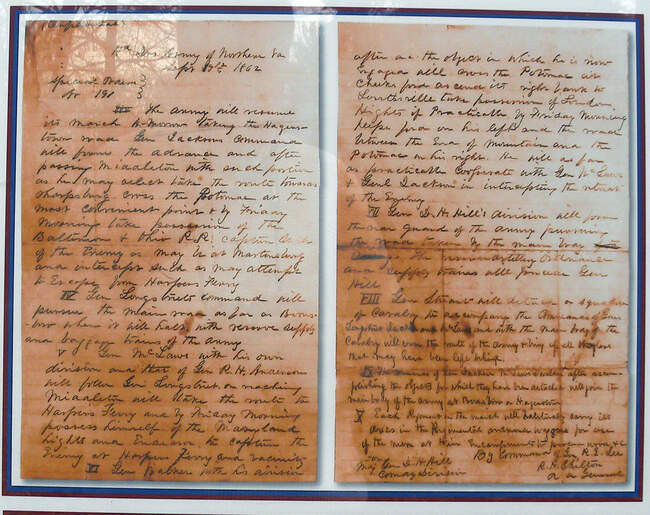 Hd Qrs Army of Northern Va
Sept 9th 1862
Special Orders
No 191
III The Army will resume
its march to-morrow taking the Hagers-
town road. Gen Jacksons command
will form the advance and after
passing Middleton with such portion
as he may select take the route towards
Sharpsburg cross the Potomac at the
most convenient point & by Friday
morning take possession of the
Baltimore & Ohio R.R. capture such
of the Enemy as may be at Martinsburg
and intercept such as may attempt
to Escape from Harpers Ferry
IV Gen Longstreets command will
pursue the main road as far as Boons-
boro where it will halt, with reserve supply
and baggage trains of the army
V Gen McLaws with his own
division and that of Gen R. H. Anderson
will follow Gen Longstreet on reaching
Middleton will take the route to
Harpers Ferry and by Friday Morning
possess himself of the Maryland
hights and Endeavor to capture the
Enemy at Harpers Ferry and vicinity
VI Gen Walker with his division
after the object in which he is now
engaged will cross the Potomac at
Cheeks ford ascend its right bank to
Lovettsville take possession of Loudoun
Hights if Practicable by Friday Morning
Keyes ford on his left and the road
between the End of Mountain and the
Potomac on his right. He will as far
as practicable Cooperate with Gen McLaws
& Genl Jackson in intercepting the retreat
of the Enemy
VII Gen D. H. Hill's division will form
the rear guard of the Army pursuing
the road taken by the main body
The reserve artillery Ordnance
and supply trains will precede Gen
Hill
VIII Gen Stuart will detach a squadron
of Cavalry to accompany the Commands of Gen
Longstreet Jackson and McLaws and with the main body of the
Cavalry will cover the route of the Army & bring up all stragglers
that may have been left behind
IX The commands of Gen Jackson McLaws & Walker after accom-
plishing the objects for which they have been detached will join the
main body of the army at Boonsboro or Hagerstown
X Each Regiment on the march will habitually carry its
axes in the Regimental ordnance wagons for use
of the men at their Encampments to procure wood &c
By Command of Gen R. E. Lee
R. H. Chilton
A. A. General
Maj Gen D. H. Hill
Comdg Division